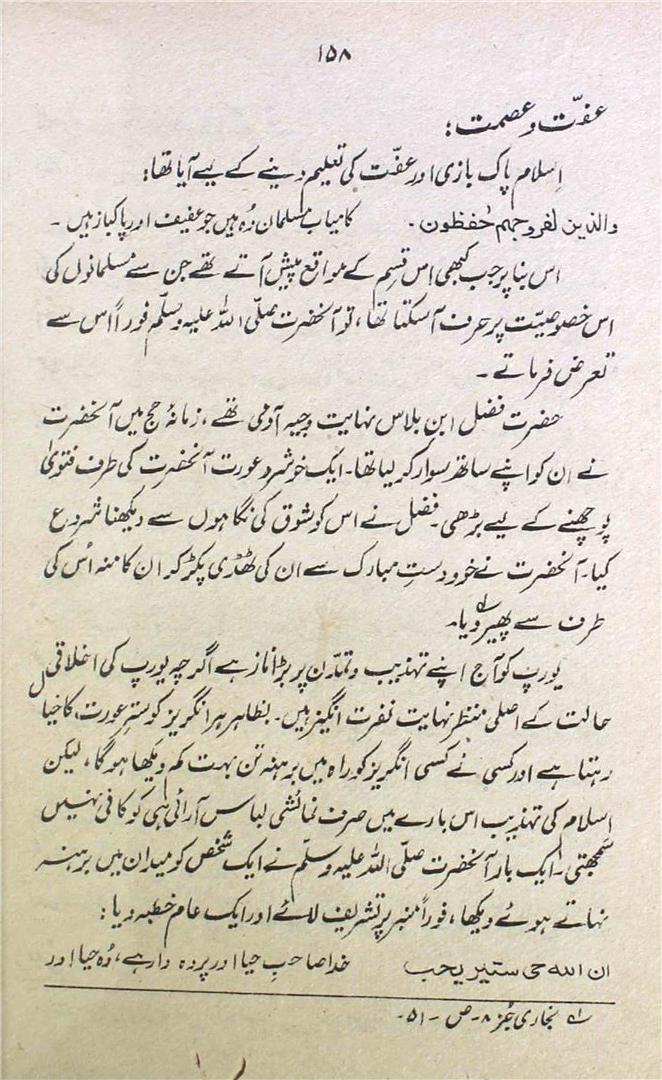 ۱۵۸
عفّت و عصمت:
اسلام پاک بازی اور عفّت کی تعلیم دینے کے لیے آیا تھا:
والذین لفروجہم حٰفظون۔ کامیاب مسلمان وُہ ہیں جو عفیف اور پاکباز ہیں۔
اس بنا پر جب کبھی اِس قسم کے مواقع پیش آتے تھے جن سے مسلمانوں کی
اس خصوصیّت پر حرف آ سکتا تھا، تو آنحضرت صلّی اللہ علیہ وسلّم فوراً اس سے
تعرض فرماتے۔
حضرت فضل ابن بلاس نہایت وجیہ آدمی تھے، زمانۂ حج میں آنحضرت
نے ان کو اپنے ساتھ سوار کر لیا تھا۔ ایک خوشرو عورت آنحضرت کی طرف فتویٰ
پوچھنے کے لیے بڑھی۔ فضل نے اس کو شوق کی نگاہوں سے دیکھنا شروع
کیا۔ آنحضرت نے خود دستِ مبارک سے ان کی ٹھڈی پکڑ کر ان کا منہ اُس کی
طرف سے پھیر دیا۔ لہ
یورپ کو آج اپنے تہذیب و تمدّن پر بڑا ناز ہے اگرچہ یورپ کی اخلاقی
حالت کے اصلی منظر نہایت نفرت انگیز ہیں۔ بظاہر ہر انگریز کو سترِ عورت، کا خیال
رہتا ہے اور کسی نے کسی انگریز کو راہ میں برہنہ تن بہت کم دیکھا ہوگا، لیکن
اسلام کی تہذیب اس بارے میں صرف نمائشی لباس آرائی ہی کو کافی نہیں
سمجھتی۔ ایک بار آنحضرت صلّی اللہ علیہ وسلّم نے ایک شخص کو میدان میں برہنہ
نہاتے ہوئے دیکھا، فوراً منبر پر تشریف لائے اور ایک عام خطبہ دیا:
ان اللہ حی ستیر یحب خدا صاحبِ حیا اور پردہ دار ہے، وُہ حیا اور
لہ بخاری جُز ۸۔ ص۔ ۵۱۔